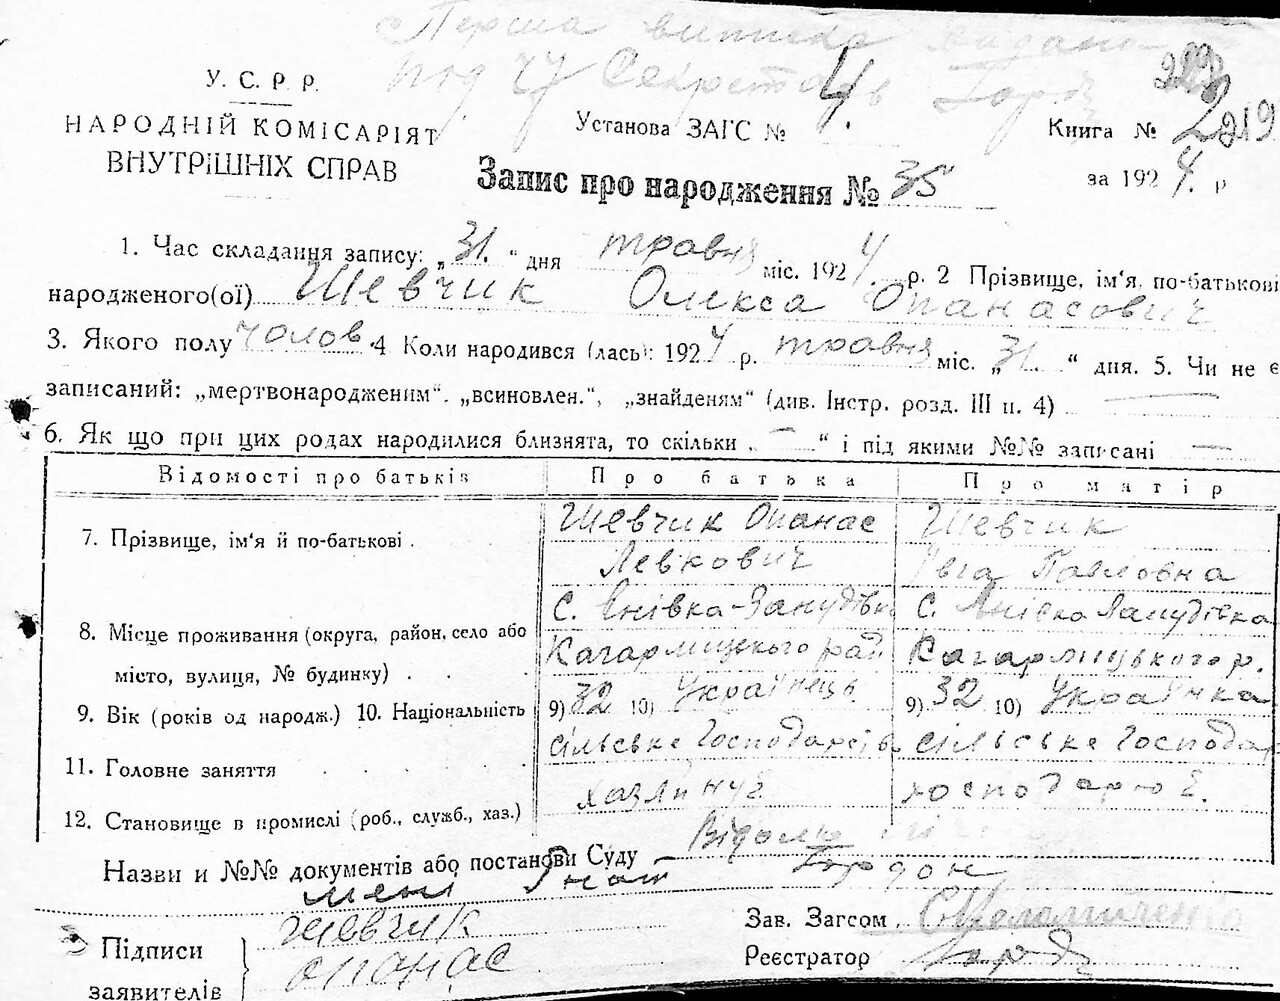 Перша виписка видана
під 27 Секретарь
У. С. Р. Р.
НАРОДНІЙ КОМІСАРІЯТ
ВНУТРІШНІХ СПРАВ
Установа ЗАГС № 4.
Книга № 2 219
Запис про народження № 35
за 1924. р
1. Час складання запису: „31.“ дня травня міс. 1924. р. 2 Прізвище, ім‘я, по-батькові
народженого(ої) Шевчик Олекса Опанасович
3. Якого полу чолов. 4 Коли народився (лась): 1924 р. травня міс. „31.“ дня. 5. Чи не є
записаний: „мертвонародженим“. „всиновлен.“, „знайденям“ (див. Інстр. розд. III п. 4) —
6. Як що при цих родах народилися близнята, то скільки „—“ і під якими №№ записані —
Відомості про батьків Про батька Про матір
7. Прізвище, ім‘я й по-батькові . Шевчик Опанас Шевчик
Левкович Івга Павловна
8. Місце проживання (округа, район, село або С. Янівка-
місто, вулиця, № будинку) . . Кагарлицкого рай Кагарлицького р.
9. Вік (років од народж.) 10. Національність 9) 32 10) Українець 9) 32 10) Українка
11. Головне заняття сільське Господарств сільське Господар
12. Становище в промислі (роб., служб., хаз.) хазяйнує господарює.
Назви и №№ документів або постанови Суду — Відомо
мені Гнат Гордон
Підписи
заявителів
Шевчик
опанас
Зав. Загсом
Реєстратор